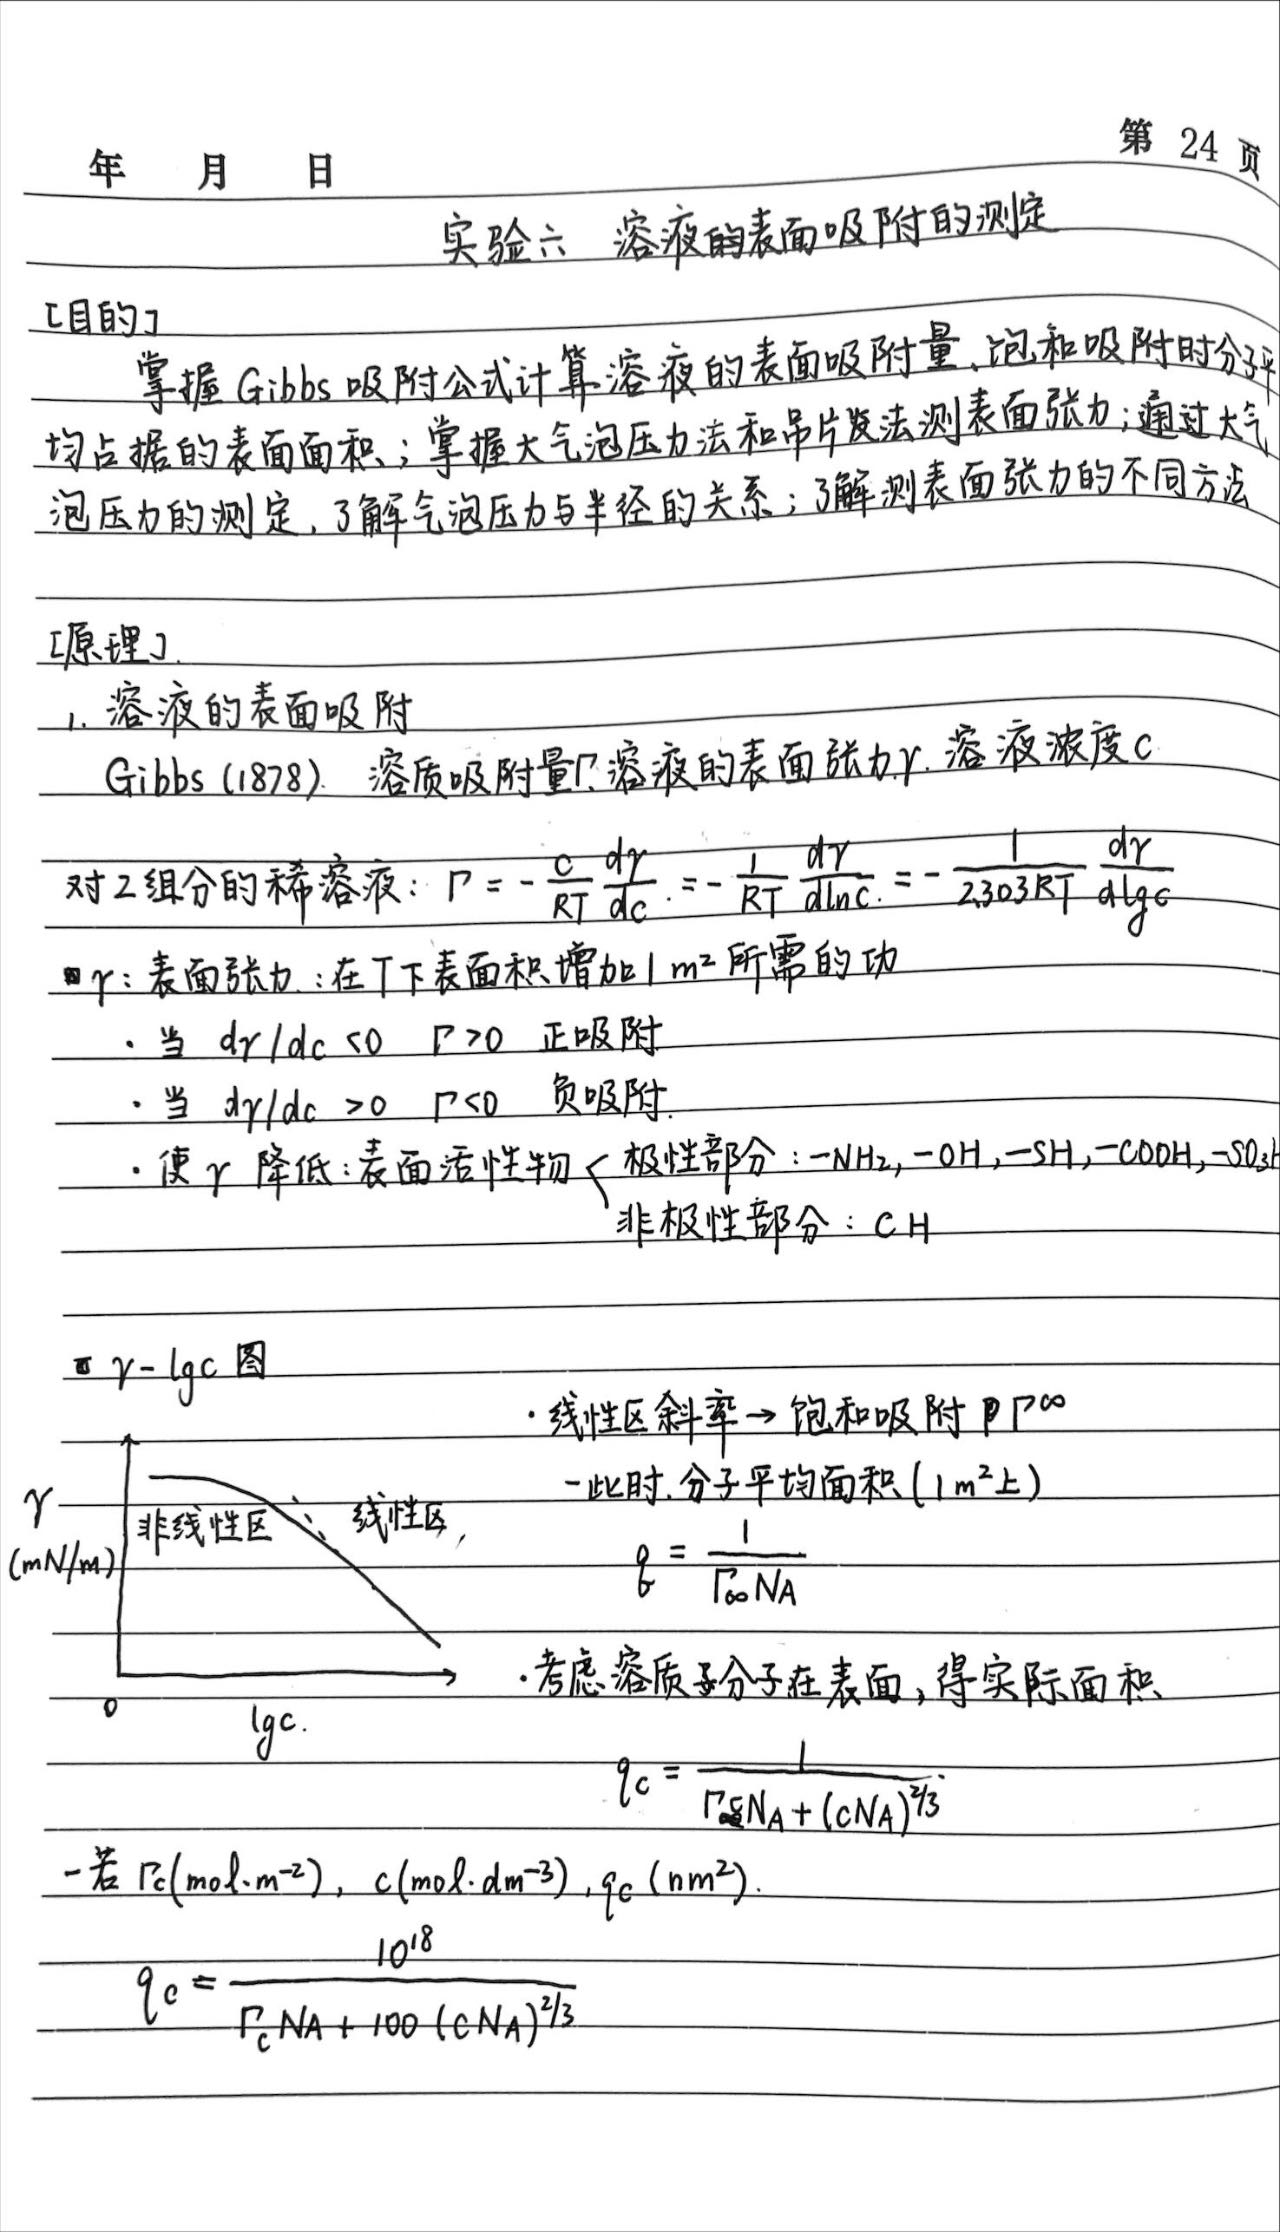 年 月 日
第 24 页
实验六 溶液的表面吸附的测定
[目的]
掌握Gibbs吸附公式计算溶液的表面吸附量、饱和吸附时分子平
均占据的表面面积；掌握大气泡压力法和吊片法测表面张力；通过大气
泡压力的测定，了解气泡压力与半径的关系；了解测表面张力的不同方法
[原理].
1. 溶液的表面吸附
Gibbs (1878). 溶质吸附量Γ. 溶液的表面张力γ. 溶液浓度c
对2组分的稀溶液： Γ = - c/RT dγ/dc. = - 1/RT dγ/dlnc. = - 1/2.303RT dγ/dlgc
γ：表面张力.：在T下表面积增加1m²所需的功
· 当 dγ/dc <0 Γ>0 正吸附
· 当 dγ/dc >0 Γ<0 负吸附.
· 使γ降低：表面活性物< 极性部分：-NH₂, -OH, -SH, -COOH, -SO₃H
非极性部分：CH
γ-lgc 图
· 线性区斜率→饱和吸附 Γ∞
-此时.分子平均面积(1m²上)
γ
(mN/m)
非线性区
线性区
q = 1/Γ∞NA
· 考虑溶质分子在表面，得实际面积
0
lgc.
qc = 1/ΓcNA + (cNA)^2/3
-若 Γc(mol·m⁻²), c(mol·dm⁻³), qc (nm²).
qc = 10¹⁸/ΓcNA + 100 (cNA)^2/3